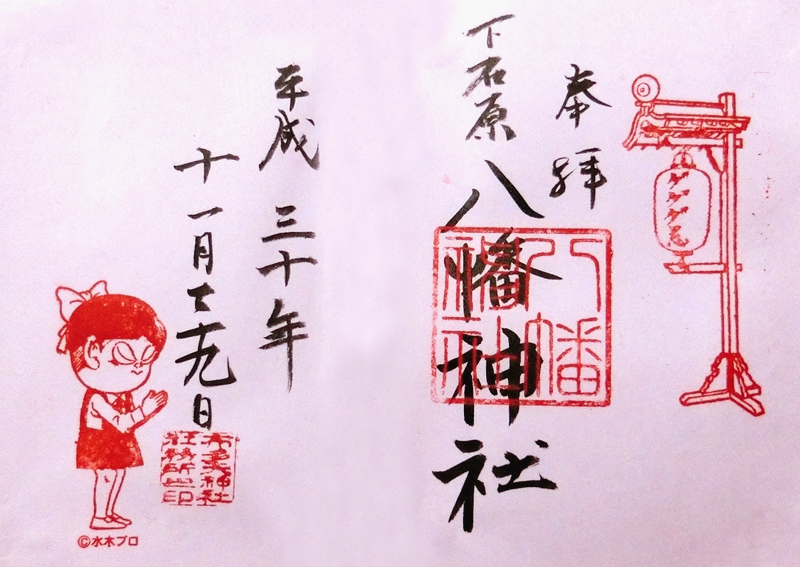 ゲゲゲ忌
奉拝
下石原
八幡神社
八幡神社
平成三十年
十一月二十九日
布多天神社
社務所之印
©水木プロ